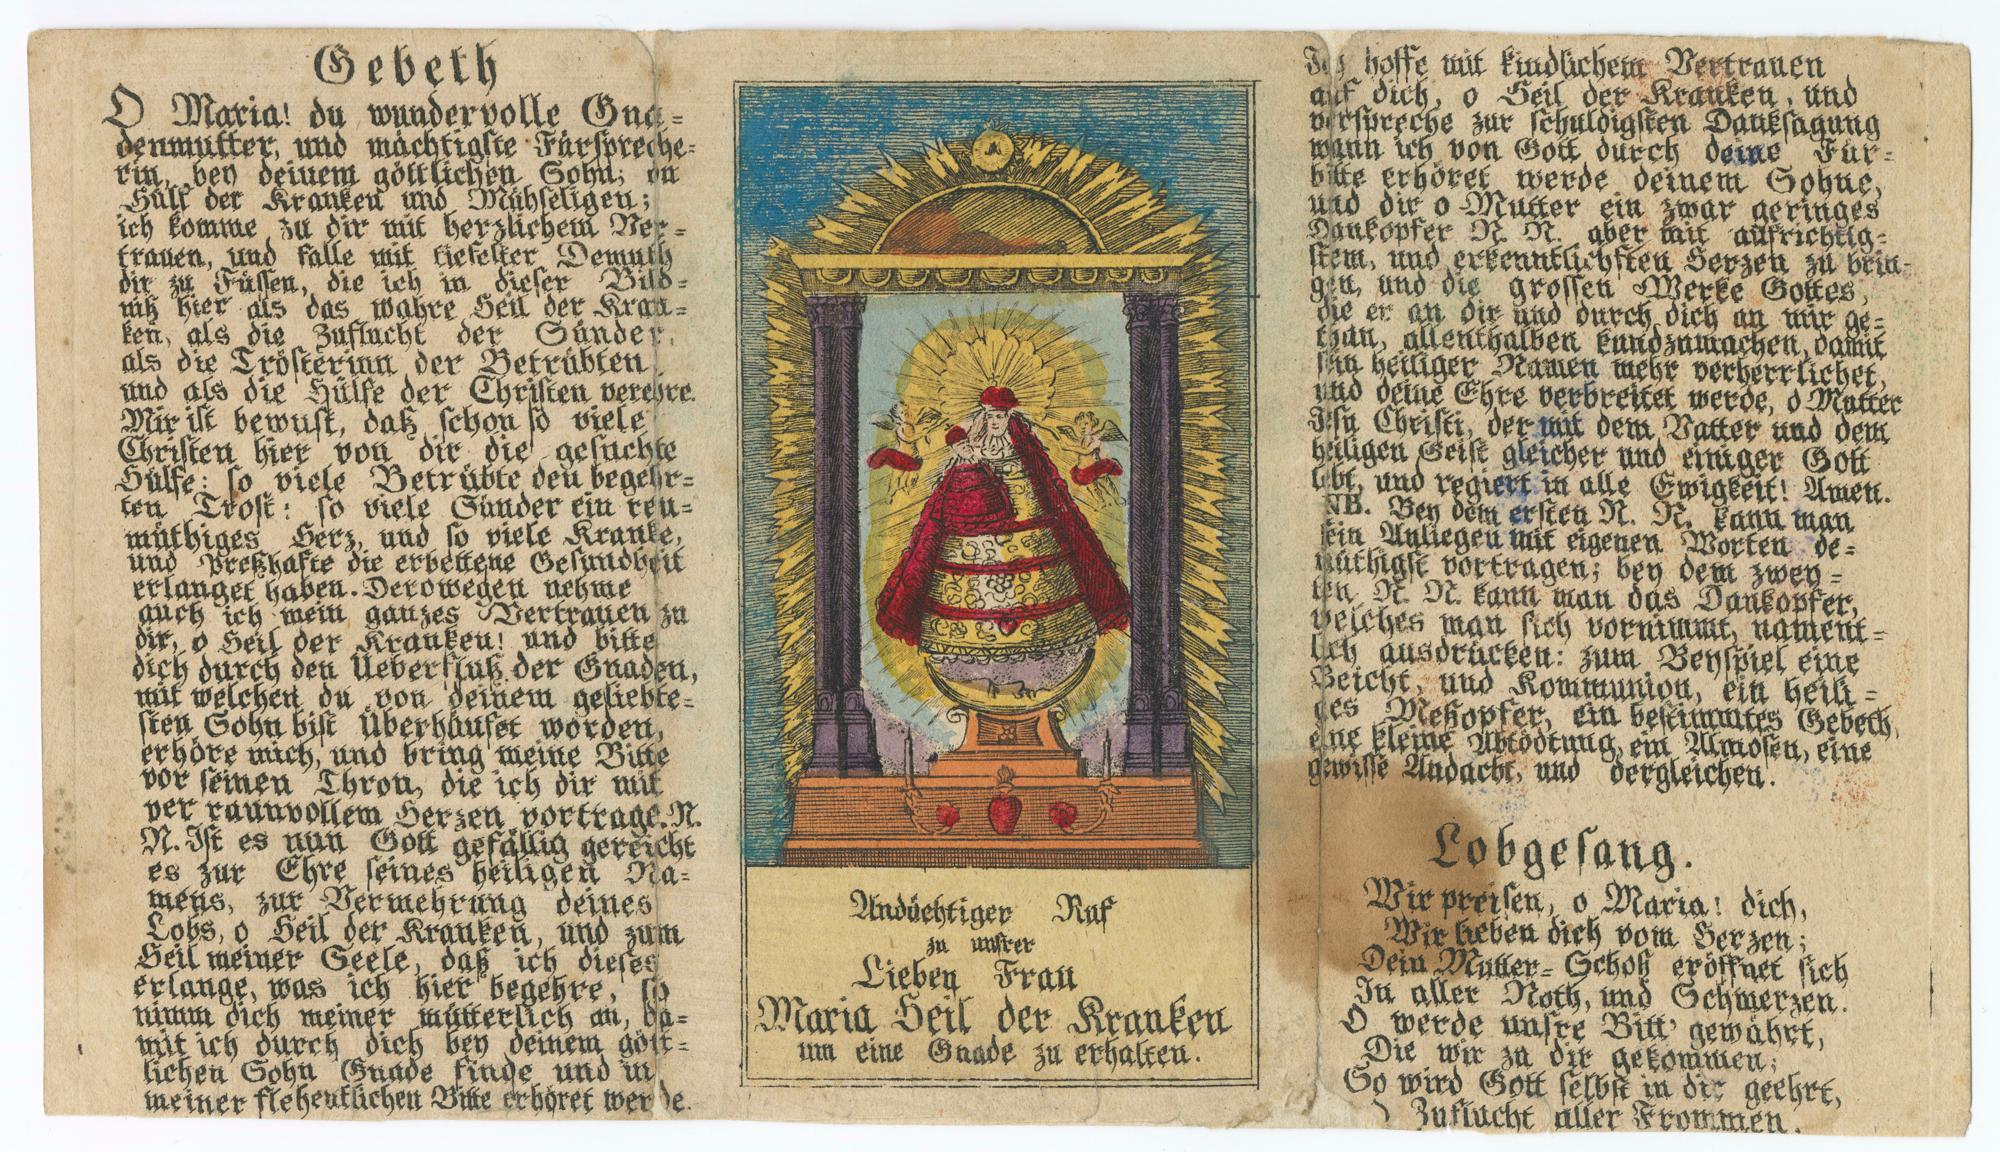 Gebeth
O Maria! du wundervolle Gna=
denmutter, und mächtigste Fürspreche-
rin, bey deinem göttlichen Sohn; du
Hülf der Kranken und Mühseligen;
ich komme zu dir mit herzlichem Ver=
trauen, und falle mit tiefester Demuth
dir zu Füssen, die ich in dieser Bild=
niß hier als das wahre Heil der Kran=
ken, als die Zuflucht der Sünder,
als die Trösterinn der Betrübten,
und als die Hülfe der Christen verehre.
Mir ist bewust, daß schon so viele
Christen hier von dir die gesuchte
Hülfe: so viele Betrübte den begehr=
ten Trost: so viele Sünder ein reu=
müthiges Herz, und so viele Kranke,
und Preßhafte die erbettene Gesundheit
erlanget haben. Derowegen nehme
auch ich mein ganzes Vertrauen zu
dir, o Heil der Kranken! und bitte
dich durch den Ueberfluß der Gnaden,
mit welchen du von deinem geliebte=
sten Sohn bist Überhäufet worden,
erhöre mich, und bring meine Bitte
vor seinen Thron, die ich dir mit
ver raunvollem Herzen vortrage. N.
N. Ist es nun Gott gefällig gereicht
es zur Ehre seines heiligen Na=
mens, zur Vermehrung deines
Lobs, o Heil der Kranken, und zum
Heil meiner Seele, daß ich dieses
erlange, was ich hier begehre, so
nimm dich meiner mütterlich an, da=
mit ich durch dich bey deinem gött=
lichen Sohn Gnade finde und in
meiner flehentlichen Bitte erhöret werde.
Andächtiger Ruf
zu unsrer
Lieben Frau
Maria Heil der Kranken
um eine Gnade zu erhalten.
Ich hoffe mit kindlichem Vertrauen
auf dich, o Heil der Kranken, und
verspreche zur schuldigsten Danksagung
wann ich von Gott durch deine Für=
bitte erhöret werde deinem Sohne,
und dir o Mutter ein zwar geringes
Dankopfer N. N. aber mit aufrichtig=
stem, und erkenntlichsten Herzen zu brin=
gen, und die grossen Werke Gottes,
die er an dir und durch dich an mir ge=
than, allenthalben kundzumachen, damit
sein heiliger Namen mehr verherrlichet,
und deine Ehre verbreitet werde, o Mutter
Jesu Christi, der mit dem Vatter und dem
heiligen Geist gleicher und einiger Gott
lebt, und regiert in alle Ewigkeit! Amen.
NB. Bey dem ersten N. N. kann man
sein Anliegen mit eigenen Worten de=
müthigst vortragen; bey dem zwey=
ten N. N. kann man das Dankopfer,
welches man sich vornimmt, nament=
lich ausdrücken: zum Beyspiel eine
Beicht, und Kommunion, ein heili=
ges Meßopfer, ein bestimmtes Gebeth,
eine kleine Abtödtung, ein Almosen, eine
gewisse Andacht, und dergleichen.
Lobgesang.
Wir preisen, o Maria! dich,
Wir lieben dich vom Herzen;
Dein Mutter=Schoß eröffnet sich
In aller Noth, und Schmerzen.
O werde unsre Bitt' gewährt,
Die wir zu dir gekommen;
So wird Gott selbst in dir geehrt,
O Zuflucht aller Frommen.